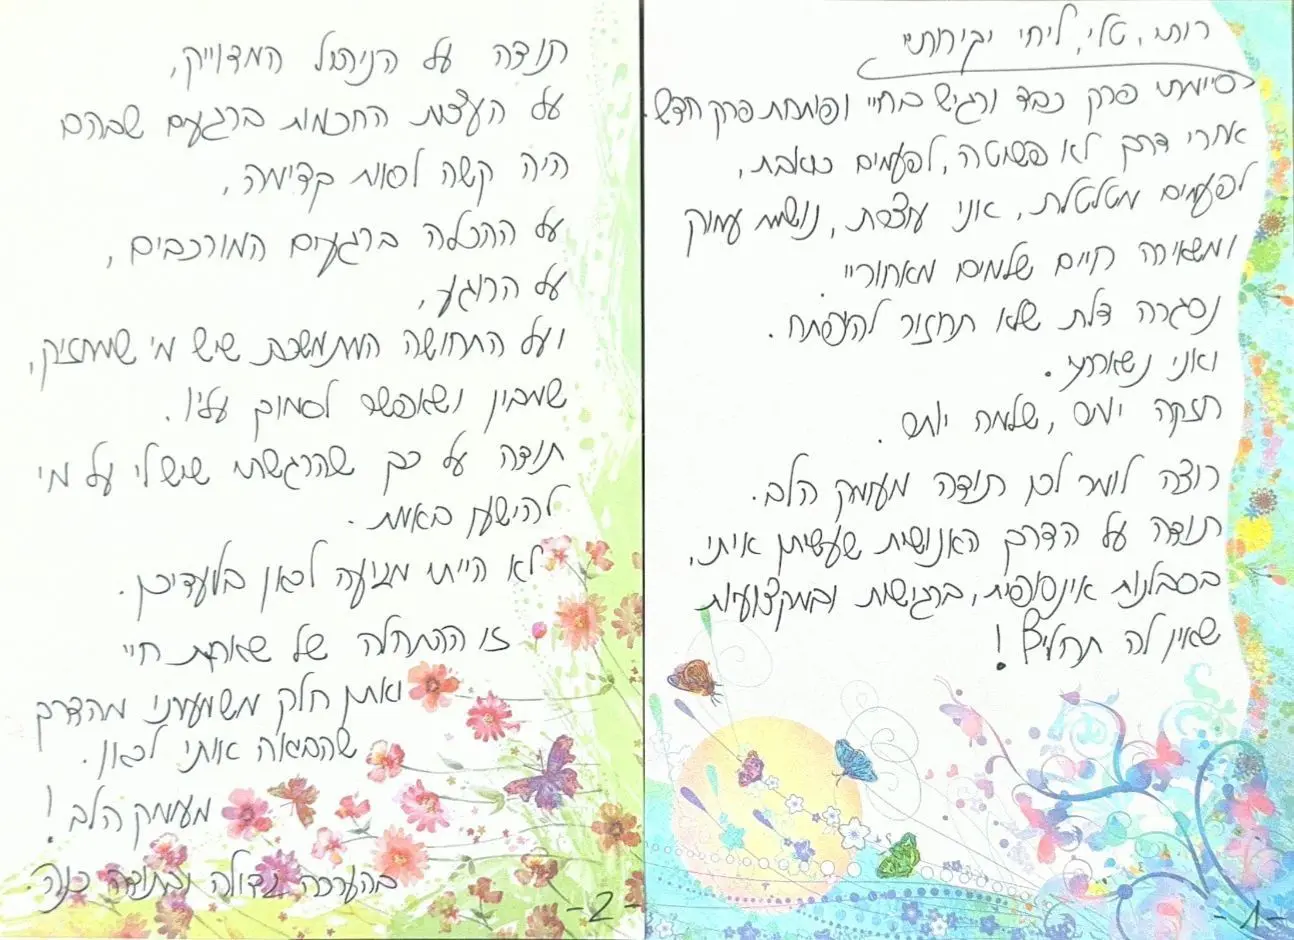 רותי, טלי, ליחי יקירותיי
סיימתי פרק כבד ורגיש בחיי ופותחת פרק חדש.
אחרי דרך לא פשוטה, לפעמים כואבת,
לפעמים מטלטלת, אני עוצרת, נושמת עמוק
ומשאירה חיים שלמים מאחוריי.
נסגרה דלת שלא תחזור להיפתח.
ואני נשארתי.
חזקה יותר, שלמה יותר.
רוצה לומר לכן תודה מעומק הלב.
תודה על הדרך האנושית שעשיתן איתי,
בסבלנות אינסופית, ברגישות ובמקצועיות
שאין לה תחליף!
-1-
תודה על הניהול המדוייק,
על העצות החכמות ברגעים שבהם
היה קשה לראות קדימה,
על ההכלה ברגעים המורכבים,
על הרוגע,
ועל התחושה המתמשכת שיש מי שמחזיק,
שמבין ושאפשר לסמוך עליו.
תודה על כך שהרגשתי שיש לי על מי
להישען באמת.
לא הייתי מגיעה לכאן בלעדיכן.
זו ההתחלה של שארית חיי
ואתן חלק משמעותי מהדרך
שהביאה אותי לכאן.
מעומק הלב!
בהערכה גדולה ובתודה כנה.
-2-